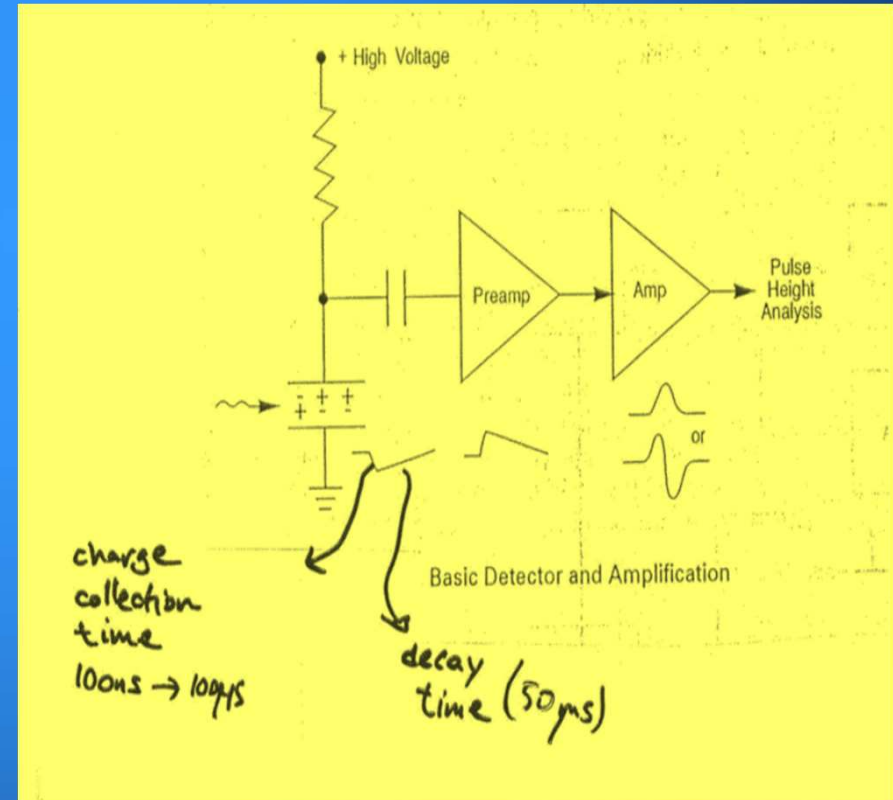 + High Voltage
Preamp
Amp
Pulse
Height
Analysis
- + +
+ - -
or
Basic Detector and Amplification
charge
collection
time
100ns → 100μs
decay
time (50μs)